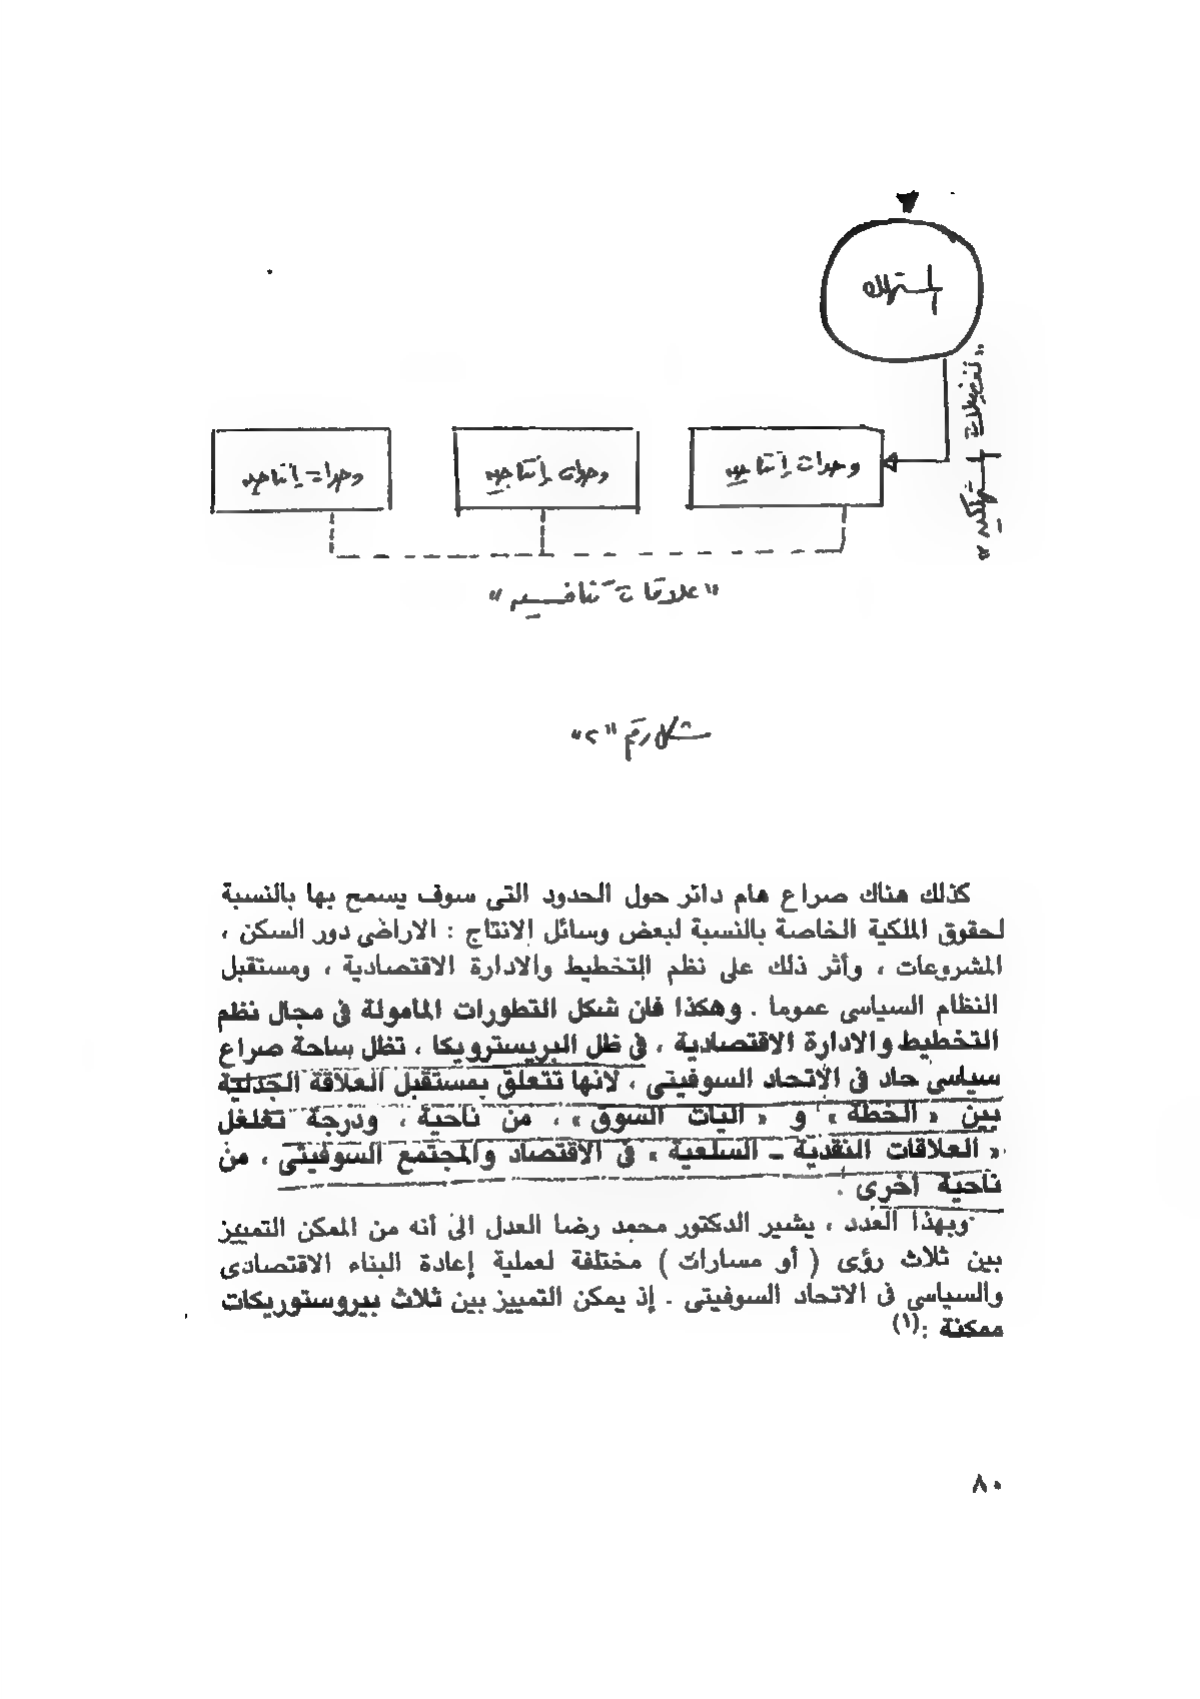 إستهلاك
« تفضيلات إستهلاكية »
وحدات إنتاجيه
وحدات إنتاجيه
وحدات إنتاجيه
"علاقات تنافسيه"
شكل رقم "٢"
كذلك هناك صراع هام دائر حول الحدود التى سوف يسمح بها بالنسبة
لحقوق الملكية الخاصة بالنسبة لبعض وسائل الانتاج : الاراضى دور السكن ،
المشروعات ، وأثر ذلك على نظم التخطيط والادارة الاقتصادية ، ومستقبل
النظام السياسى عموما . وهكذا فان شكل التطورات المأمولة فى مجال نظم
التخطيط والادارة الاقتصادية ، فى ظل البريسترويكا ، تظل ساحة صراع
سياسى حاد فى الاتحاد السوفيتى ، لانها تتعلق بمستقبل العلاقة الجدلية
بين « الخطة » و « اليات السوق » ، من ناحية ، ودرجة تغلغل
« العلاقات النقدية ـ السلعية » فى الاقتصاد والمجتمع السوفيتى ، من
ناحية أخرى .
وبهذا العدد ، يشير الدكتور محمد رضا العدل الى أنه من الممكن التمييز
بين ثلاث رؤى ( أو مسارات ) مختلفة لعملية إعادة البناء الاقتصادى
والسياسى فى الاتحاد السوفيتى . إذ يمكن التمييز بين ثلاث بيروستوريكات
ممكنة :(١)
٨٠